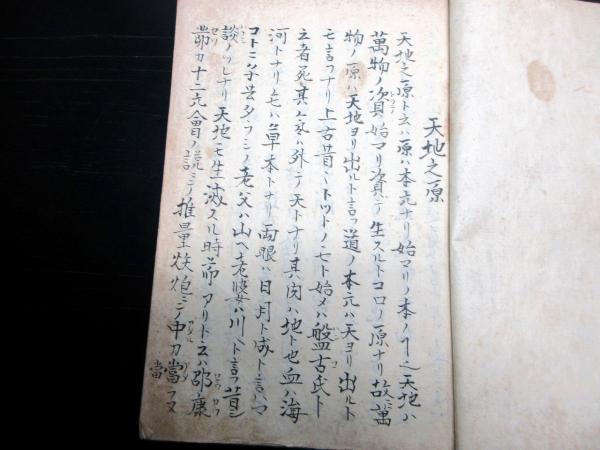 天地之原
天地之原ト云ハ原ハ本元ナリ始マリノ本ノ丁也天地ハ
萬物ノ資始マリ資テ生スルトコロノ原ナリ故ニ萬
物ノ原ハ天地ヨリ出ルト言フ道ノ本元ハ天ヨリ出ルト
モ言フナリ上古昔シトツトノ七ト始メハ盤古氏ト
云者死其氣ハ外テ天トナリ其肉ハ地ト也血ハ海
河トナリ毛ハ草木トナリ両眼ハ日月ト成ト言ハマ
コトニ老父ハ山ヘ老婆ハ川ヘト言フ昔シ
談ノツレナリ天地モ生滅スル時節アリト云ハ邵康
節カ十二元會ノ説ミノ推量ミテ中カ當フヌ
當